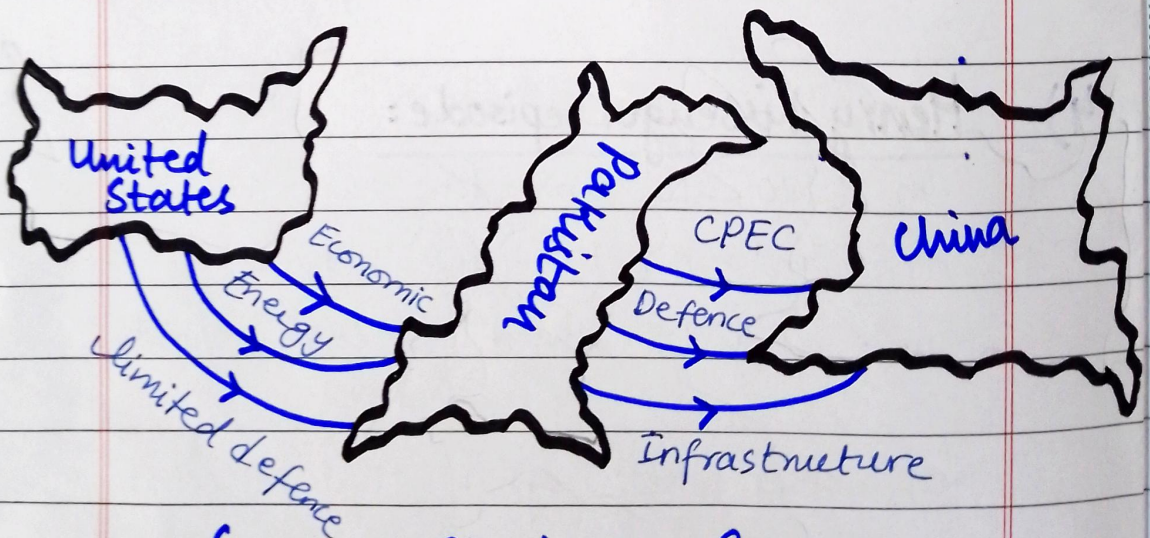 United
States
Economic
Energy
Limited defence
Pakistan
CPEC
Defence
Infrastructure
China